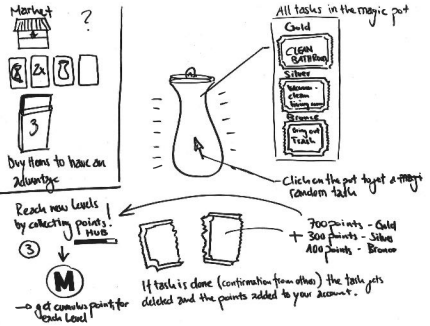 Market
?
2x
3
Buy items to have an
advantage
All tasks in the magic pot
Gold
CLEAN
BATHROOM
Silver
clean
living room
Bronze
Bring out
Trash
Click on the pot to get a
random task
Reach new levels
by collecting points!
HUB
3
M
→ get cumulus points for
each Level
700 points - Gold
+ 300 points - Silver
100 points - Bronze
If task is done (confirmation from others) the task gets
deleted and the points added to your account.